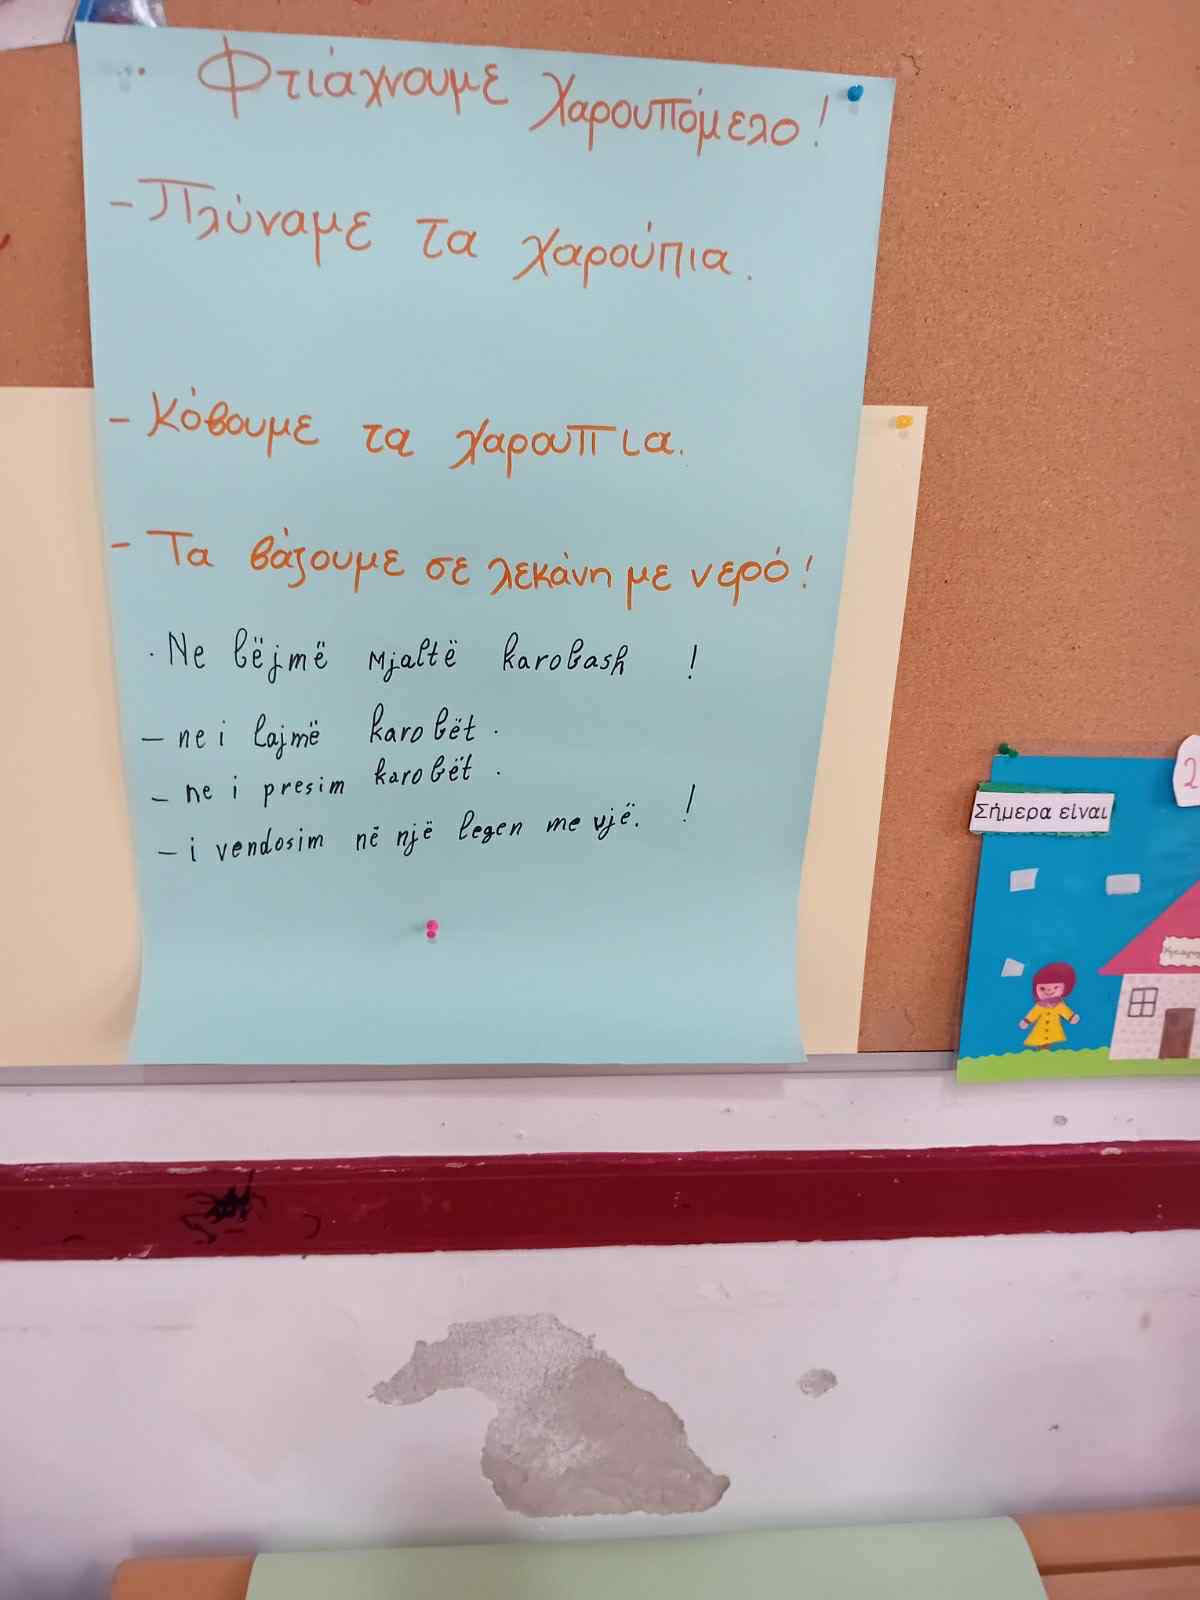 Φτιάχνουμε χαρουπόμελο!
- Πλύναμε τα χαρούπια.
- Κόβουμε τα χαρουπια.
- Τα βάζουμε σε λεκάνη με νερό!
· Ne bëjmë Mjaltë karobash !
- ne i lajmë karobët.
- ne i presim karobët.
- i vendosim në një legen me ujë. !
Σήμερα είναι
2